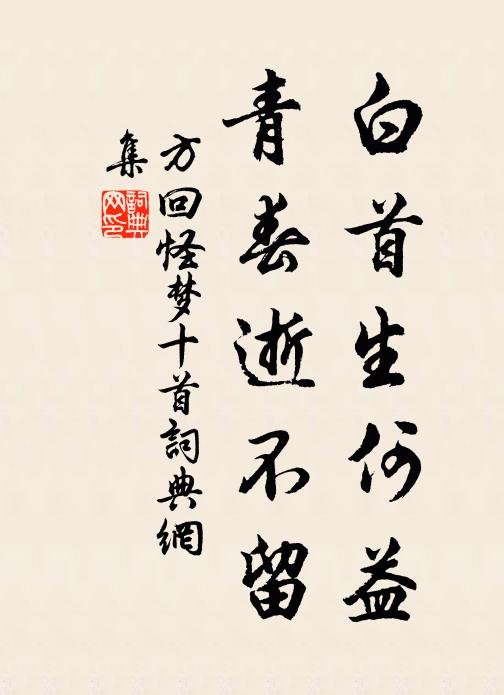 白首生何益
青春逝不留
方回怪梦十首詞典網
集
詞典網印